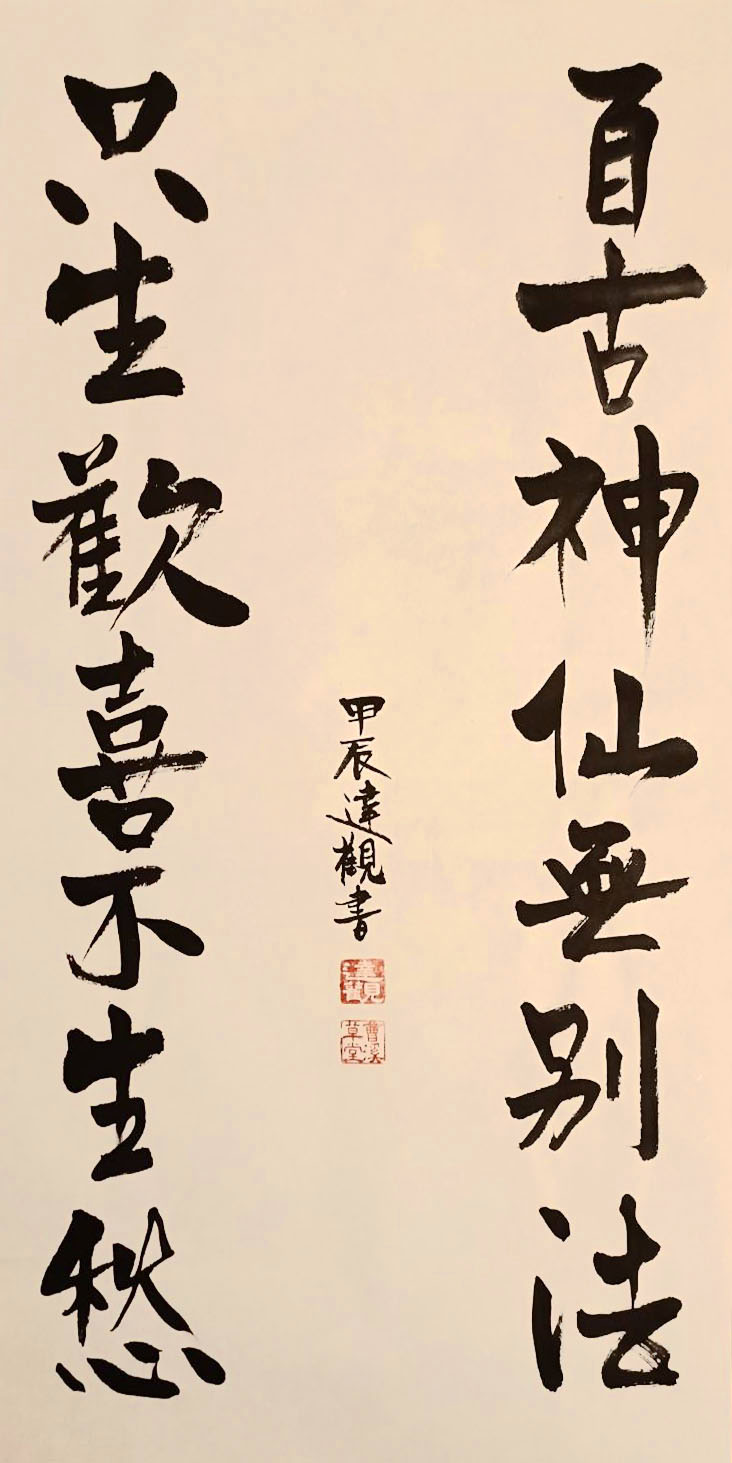 亘古神仙無别法
只生歡喜不生愁
甲辰達觀書
達觀
曹溪草堂